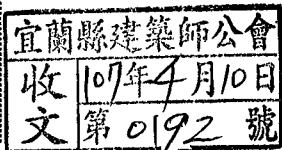 宜蘭縣建築師公會
收文
107年4月10日
第0192號